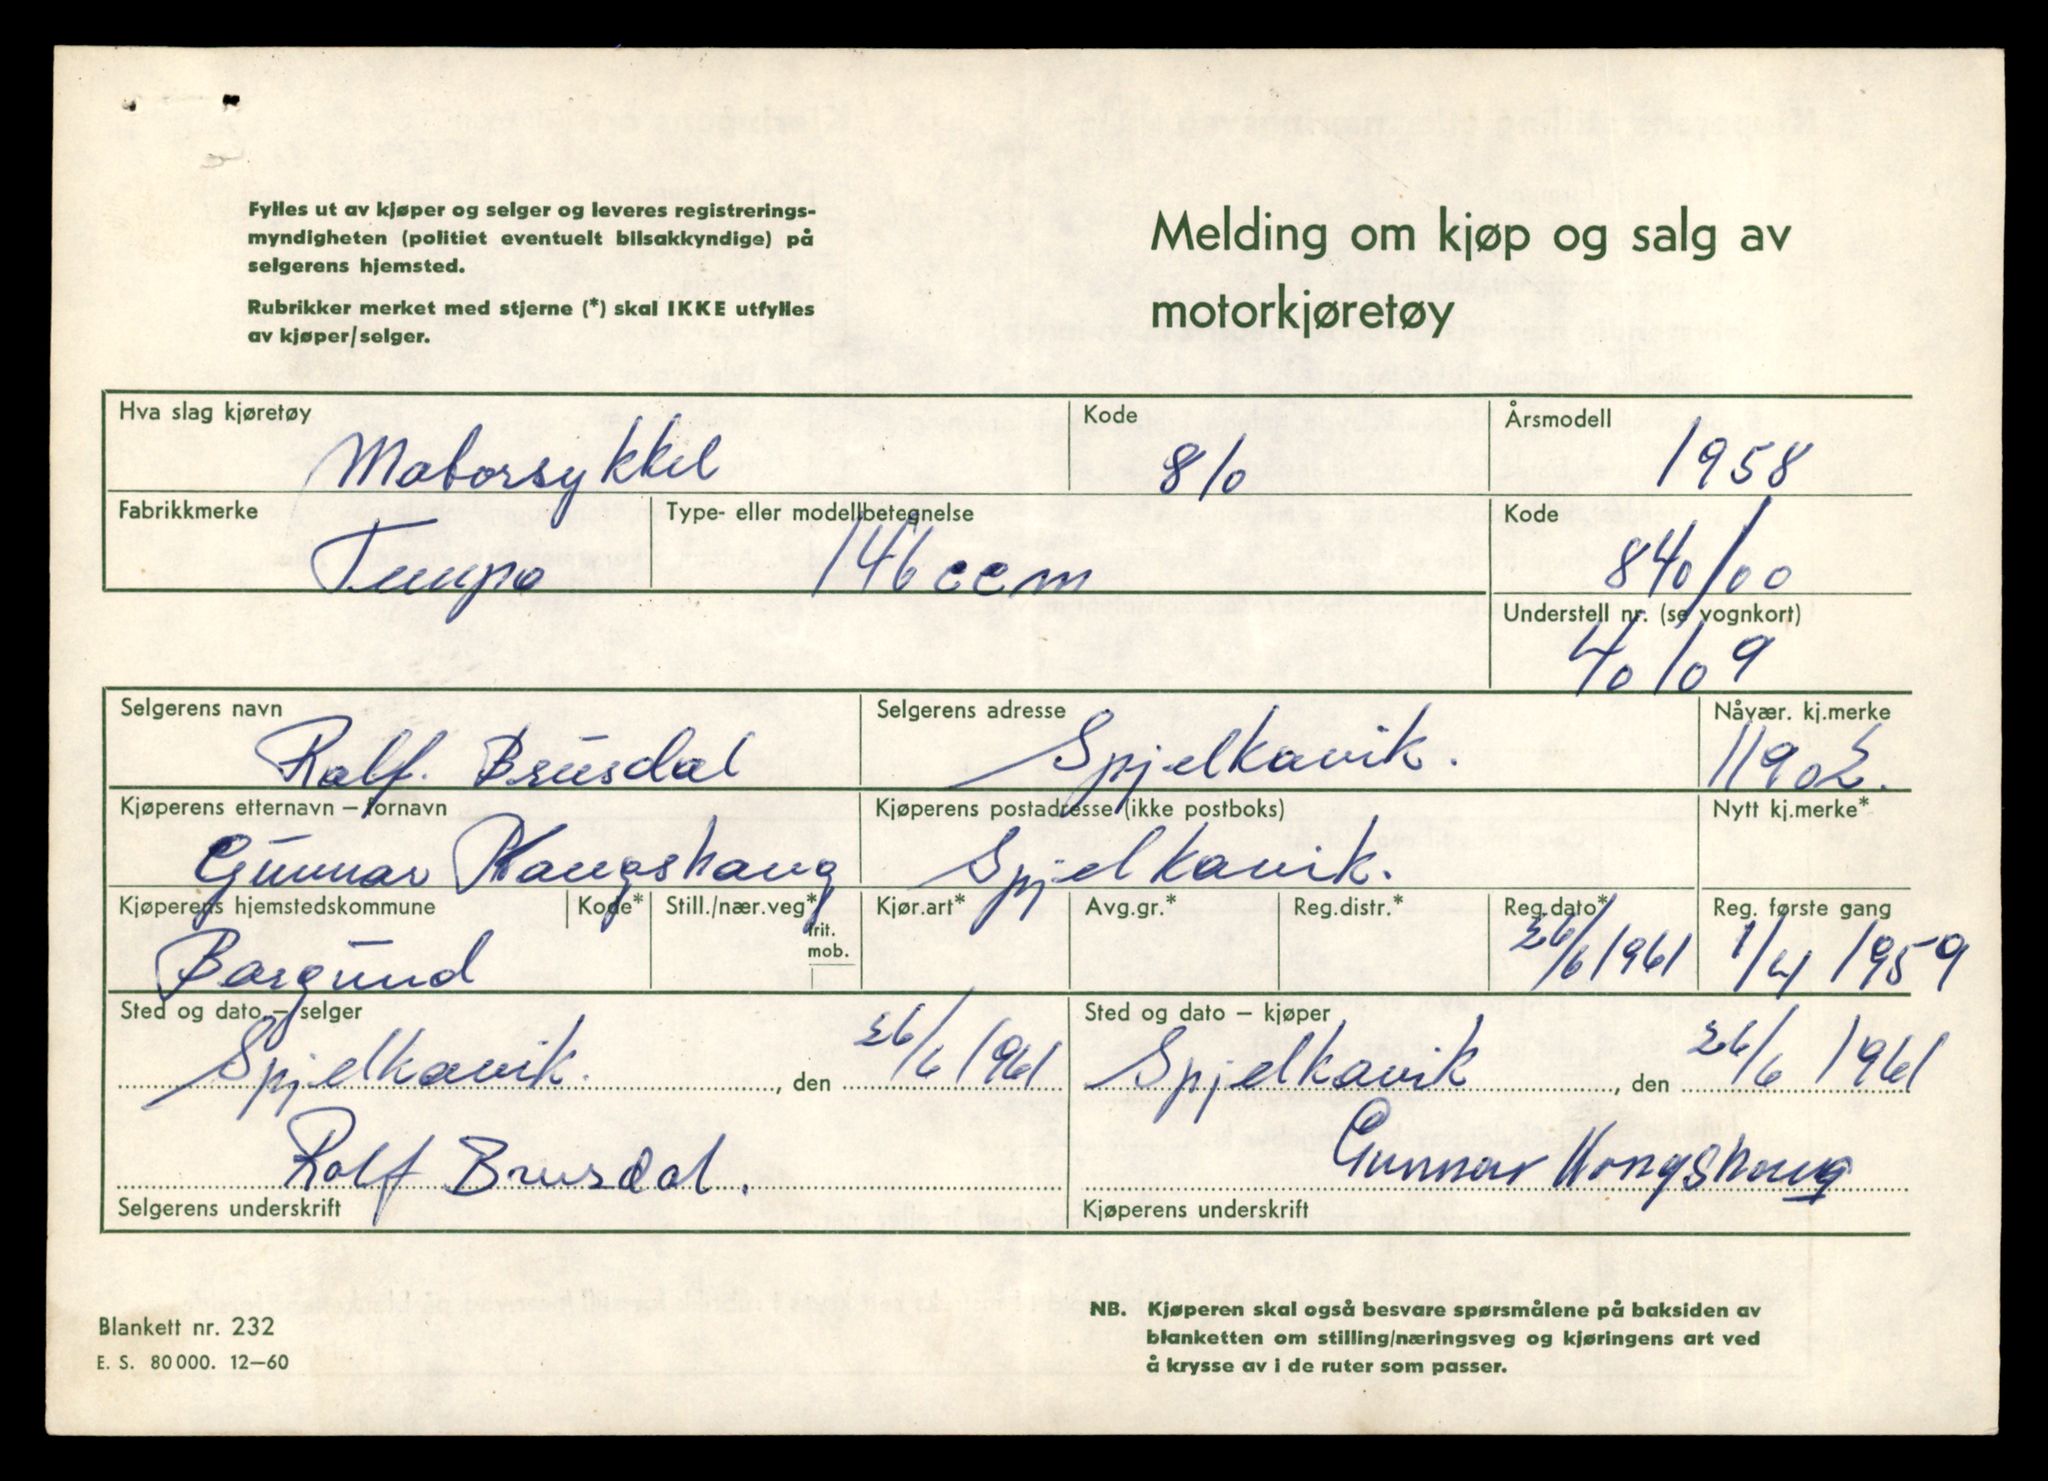 Fylles ut av kjøper og selger og leveres registrerings-
myndigheten (politiet eventuelt bilsakkyndige) på
selgerens hjemsted.
Rubrikker merket med stjerne (*) skal IKKE utfylles
av kjøper/selger.
Melding om kjøp og salg av
motorkjøretøy
Hva slag kjøretøy Kode Årsmodell
Motorsykkel 810 1958
Fabrikkmerke Type- eller modellbetegnelse Kode
Tempo 146 ccm 840/00
Understell nr. (se vognkort)
40109
Selgerens navn Selgerens adresse Nåvær. kj.merke
Rolf. Brusdal Spjelkavik. 11902.
Kjøperens etternavn – fornavn Kjøperens postadresse (ikke postboks) Nytt kj.merke*
Gunnar Kongshaug Spjelkavik.
Kjøperens hjemstedskommune Kode* Still./nær.veg* Kjør.art* Avg.gr.* Reg.distr.* Reg.dato* Reg. første gang
frit.
mob.
Borgund 26/6 1961 1/4 1959
Sted og dato – selger Sted og dato – kjøper
Spjelkavik. , den 26/6 1961 Spjelkavik , den 26/6 1961
Rolf Brusdal. Gunnar Kongshaug
Selgerens underskrift Kjøperens underskrift
Blankett nr. 232
E. S. 80 000. 12–60
NB. Kjøperen skal også besvare spørsmålene på baksiden av
blanketten om stilling/næringsveg og kjøringens art ved
å krysse av i de ruter som passer.